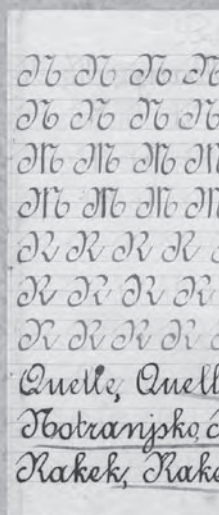 N N N N
N N N N
M M M M
M M M M
R R R R
R R R R
R R R R
Quelle, Quell
Notranjsko,
Rakek, Rake